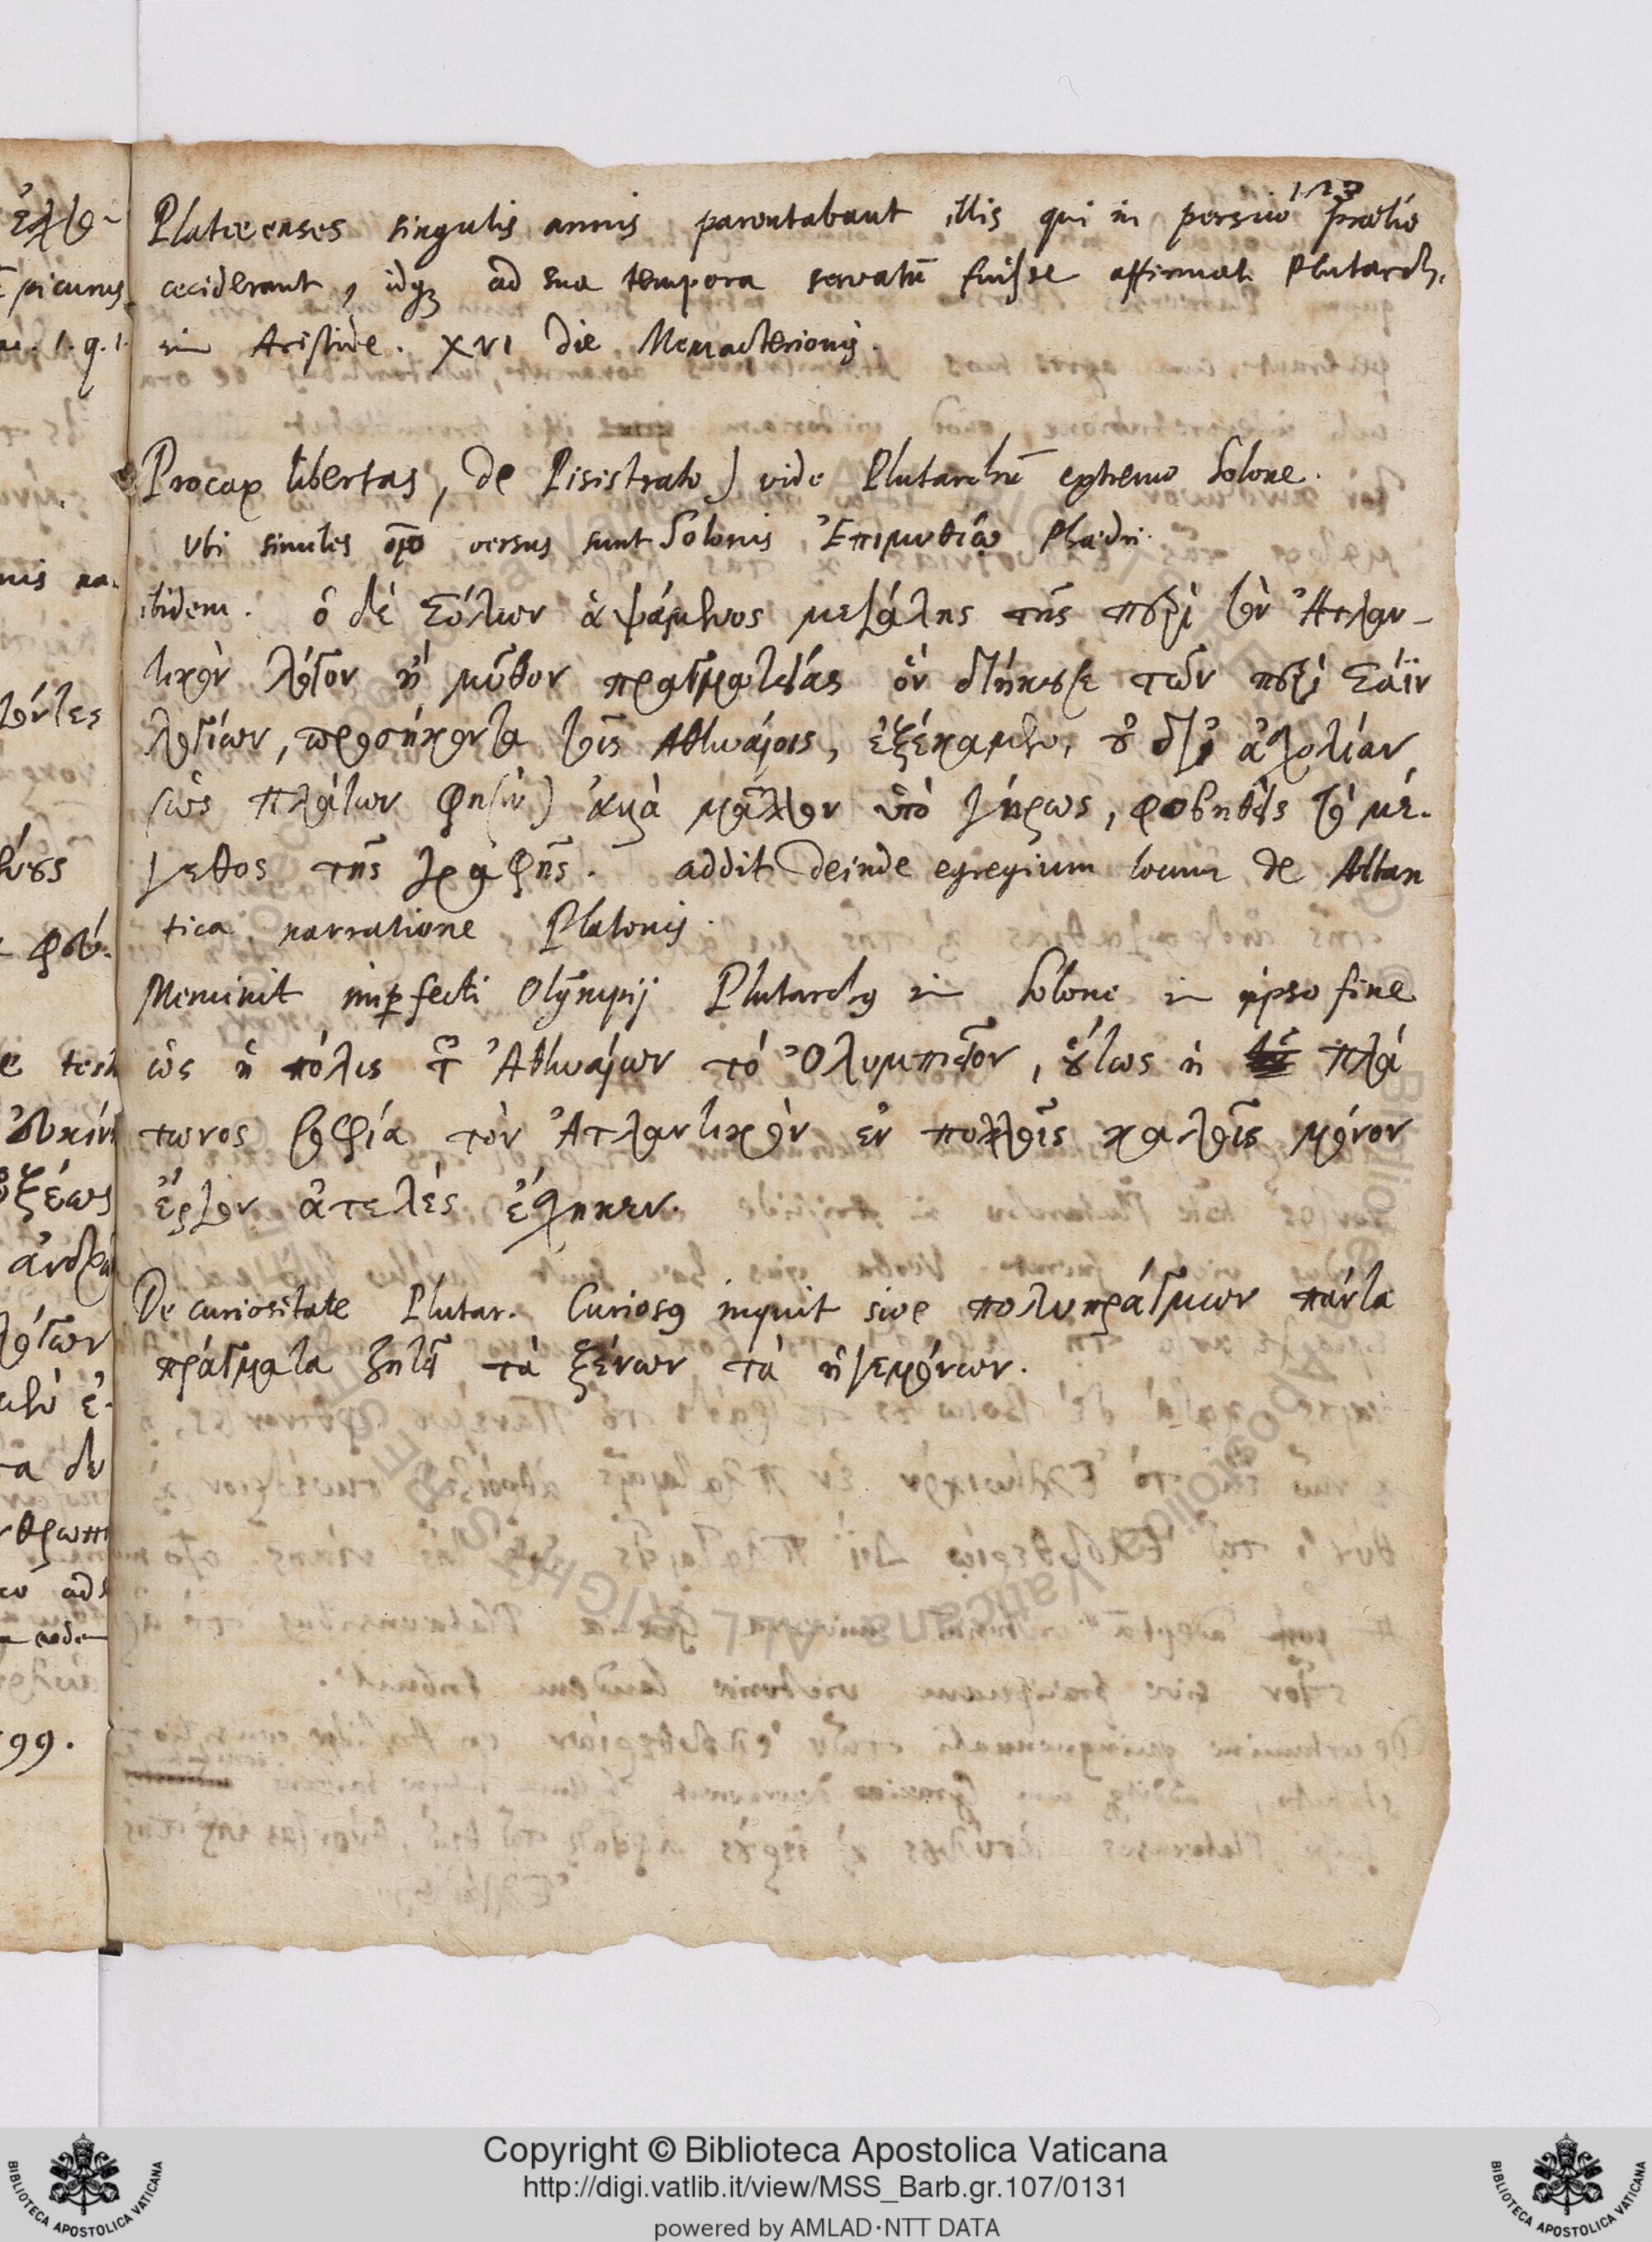 127
Plateenses singulis annis parentabant illis qui in persico prælio
ceciderant, idq; ad sua tempora servatũ fuisse affirmat Plutarch.
in Aristide. XVI die Memacterionis.
Procax libertas, de Pisistrato) vide Plutarchũ extremo Solone.
Vbi similes versus sunt Solonis Ἐπιμυθίῳ Phædri.
ibidem. ὁ δὲ Σόλων ἁψάμενος μεγάλης τῆς περὶ τὸν Ἀτλαν-
τικὸν λόγον ἢ μῦθον πραγματείας ὃν διήκουσε τῶν περὶ Σάϊν
λογίων, προσήκοντα τοῖς Ἀθηναίοις, ἐξέκαμεν, οὐ δι' ἀσχολίαν
(ὡς Πλάτων φησὶν) ἀλλὰ μᾶλλον ὑπὸ γήρως, φοβηθεὶς τὸ μέ-
γεθος τῆς γραφῆς. addit deinde egregium locum de Atlan
tica narratione Platonis.
Meminit imperfecti Olympij Plutarchus in Solone in ipso fine
ὡς ἡ πόλις τῶν Ἀθηναίων τὸ Ὀλυμπιεῖον, οὕτως ἡ Πλά
τωνος σοφία τὸν Ἀτλαντικὸν ἐν πολλοῖς καλοῖς μόνον
ἔργον ἀτελὲς ἔσχηκεν.
De curiositate Plutar. Curiosus inquit sive πολυπράγμων πάντα
πράγματα ζητεῖ τὰ ξένων τὰ ἡγεμόνων.
Copyright © Biblioteca Apostolica Vaticana
http://digi.vatlib.it/view/MSS_Barb.gr.107/0131
powered by AMLAD·NTT DATA
BIBLIOTECA APOSTOLICA VATICANA
BIBLIOTECA APOSTOLICA VATICANA